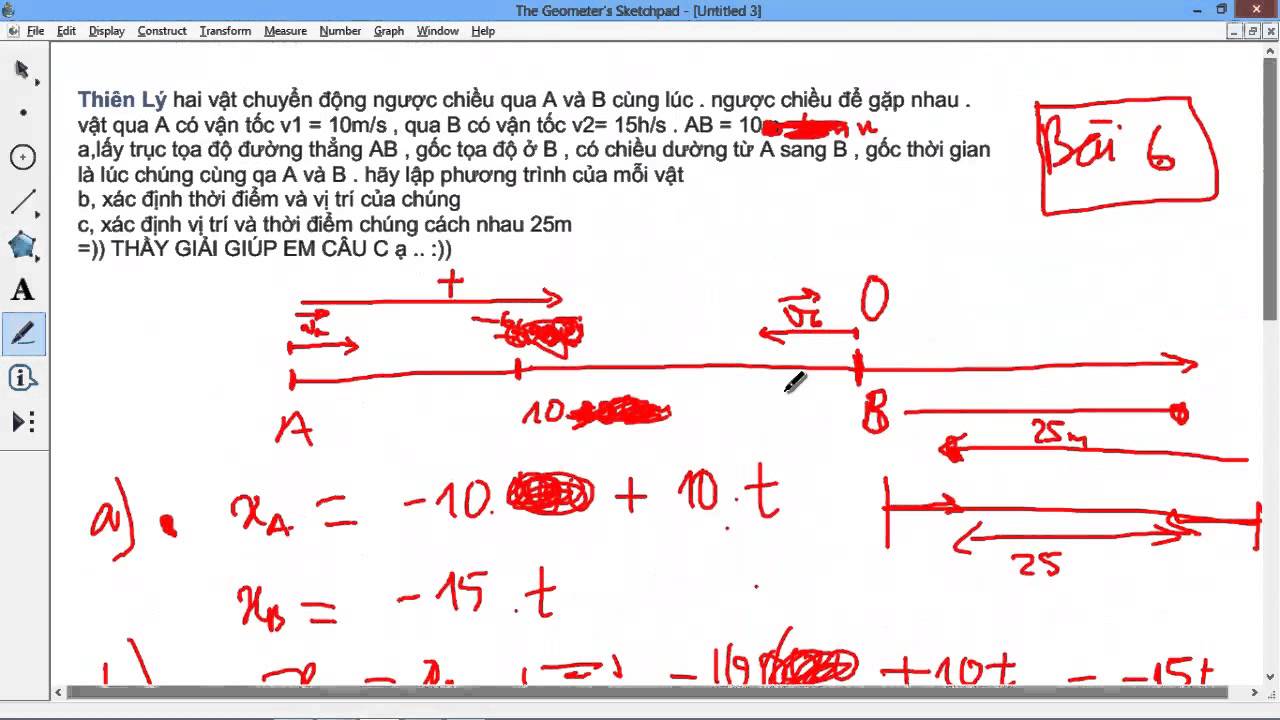 The Geometer's Sketchpad - [Untitled 3]
File Edit Display Construct Transform Measure Number Graph Window Help
Thiên Lý hai vật chuyển động ngược chiều qua A và B cùng lúc . ngược chiều để gặp nhau .
vật qua A có vận tốc v1 = 10m/s , qua B có vận tốc v2= 15h/s . AB = 10
a,lấy trục tọa độ đường thẳng AB , gốc tọa độ ở B , có chiều dường từ A sang B , gốc thời gian
là lúc chúng cùng qa A và B . hãy lập phương trình của mỗi vật
b, xác định thời điểm và vị trí của chúng
c, xác định vị trí và thời điểm chúng cách nhau 25m
=)) THẦY GIẢI GIÚP EM CÂU C ạ .. :))
Bài 6
A
+
O
A
10
B
25m
a) xA = -10. + 10.t
25
xB = -15.t
+10t = -15t